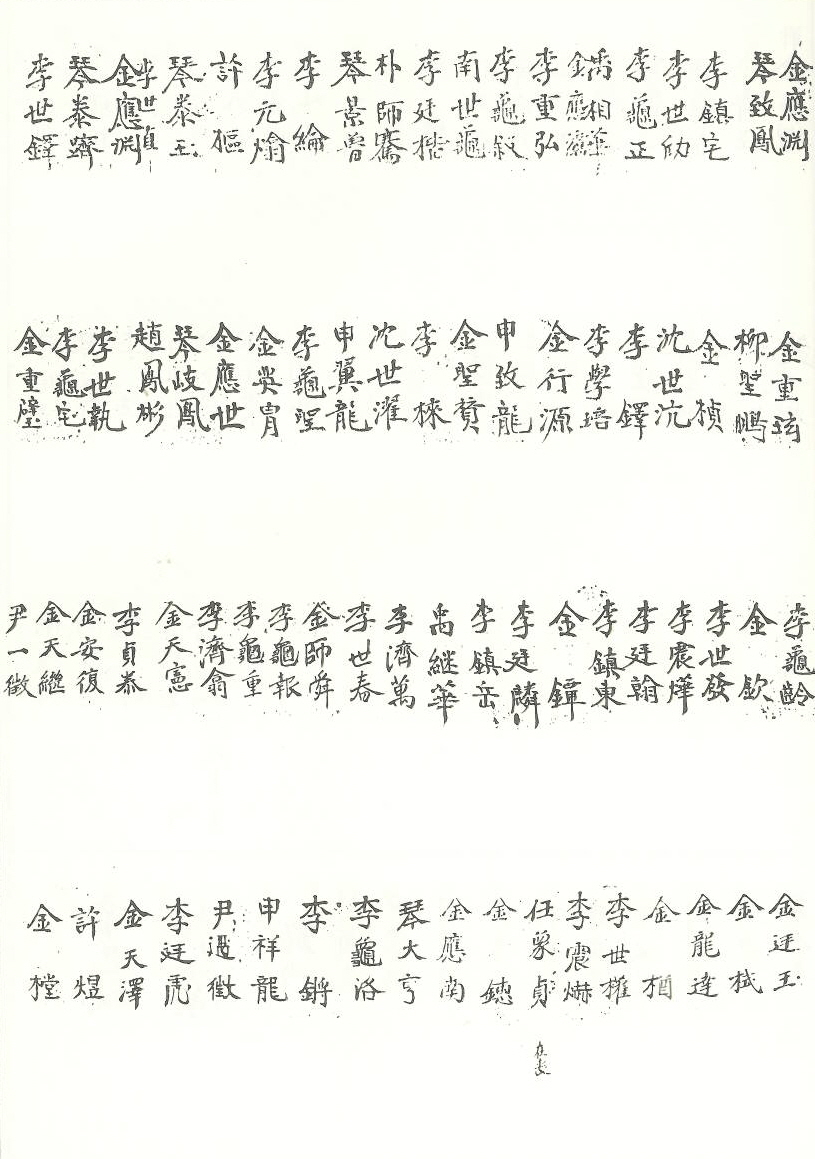 金應淵
琴致鳳
李鎮宅
李世
李龜正
禹相華
金應
李重弘
李龜敍
南世龜
李廷楷
朴師騫
琴景曾
李綸
李元
許樞
琴泰玉
李世貞
金應淵
琴泰齊
李世鐸
金重鉉
柳聖鵬
金楨
沈世沆
李鐸
李學培
金行源
申致龍
金聖賛
李
沈世濯
申翼龍
李龜聖
金英胄
金應世
琴岐鳳
趙鳳彬
李世執
李龜宅
金重璧
李龜齡
金欽
李世發
李震燁
李廷翰
李鎮東
金鐔
李廷麟
李鎮岳
禹継華
李濟萬
李世春
金師舜
李龜報
李龜重
李濟翕
金天憲
李貞泰
金安復
金天繼
尹一徵
金廷玉
金栻
金龍達
金楢
李世權
李震爀
任象貞
金鏓
金應南
琴大亨
李龜洛
李鏘
申祥龍
尹過徵
李廷虎
金天澤
許煜
金樘